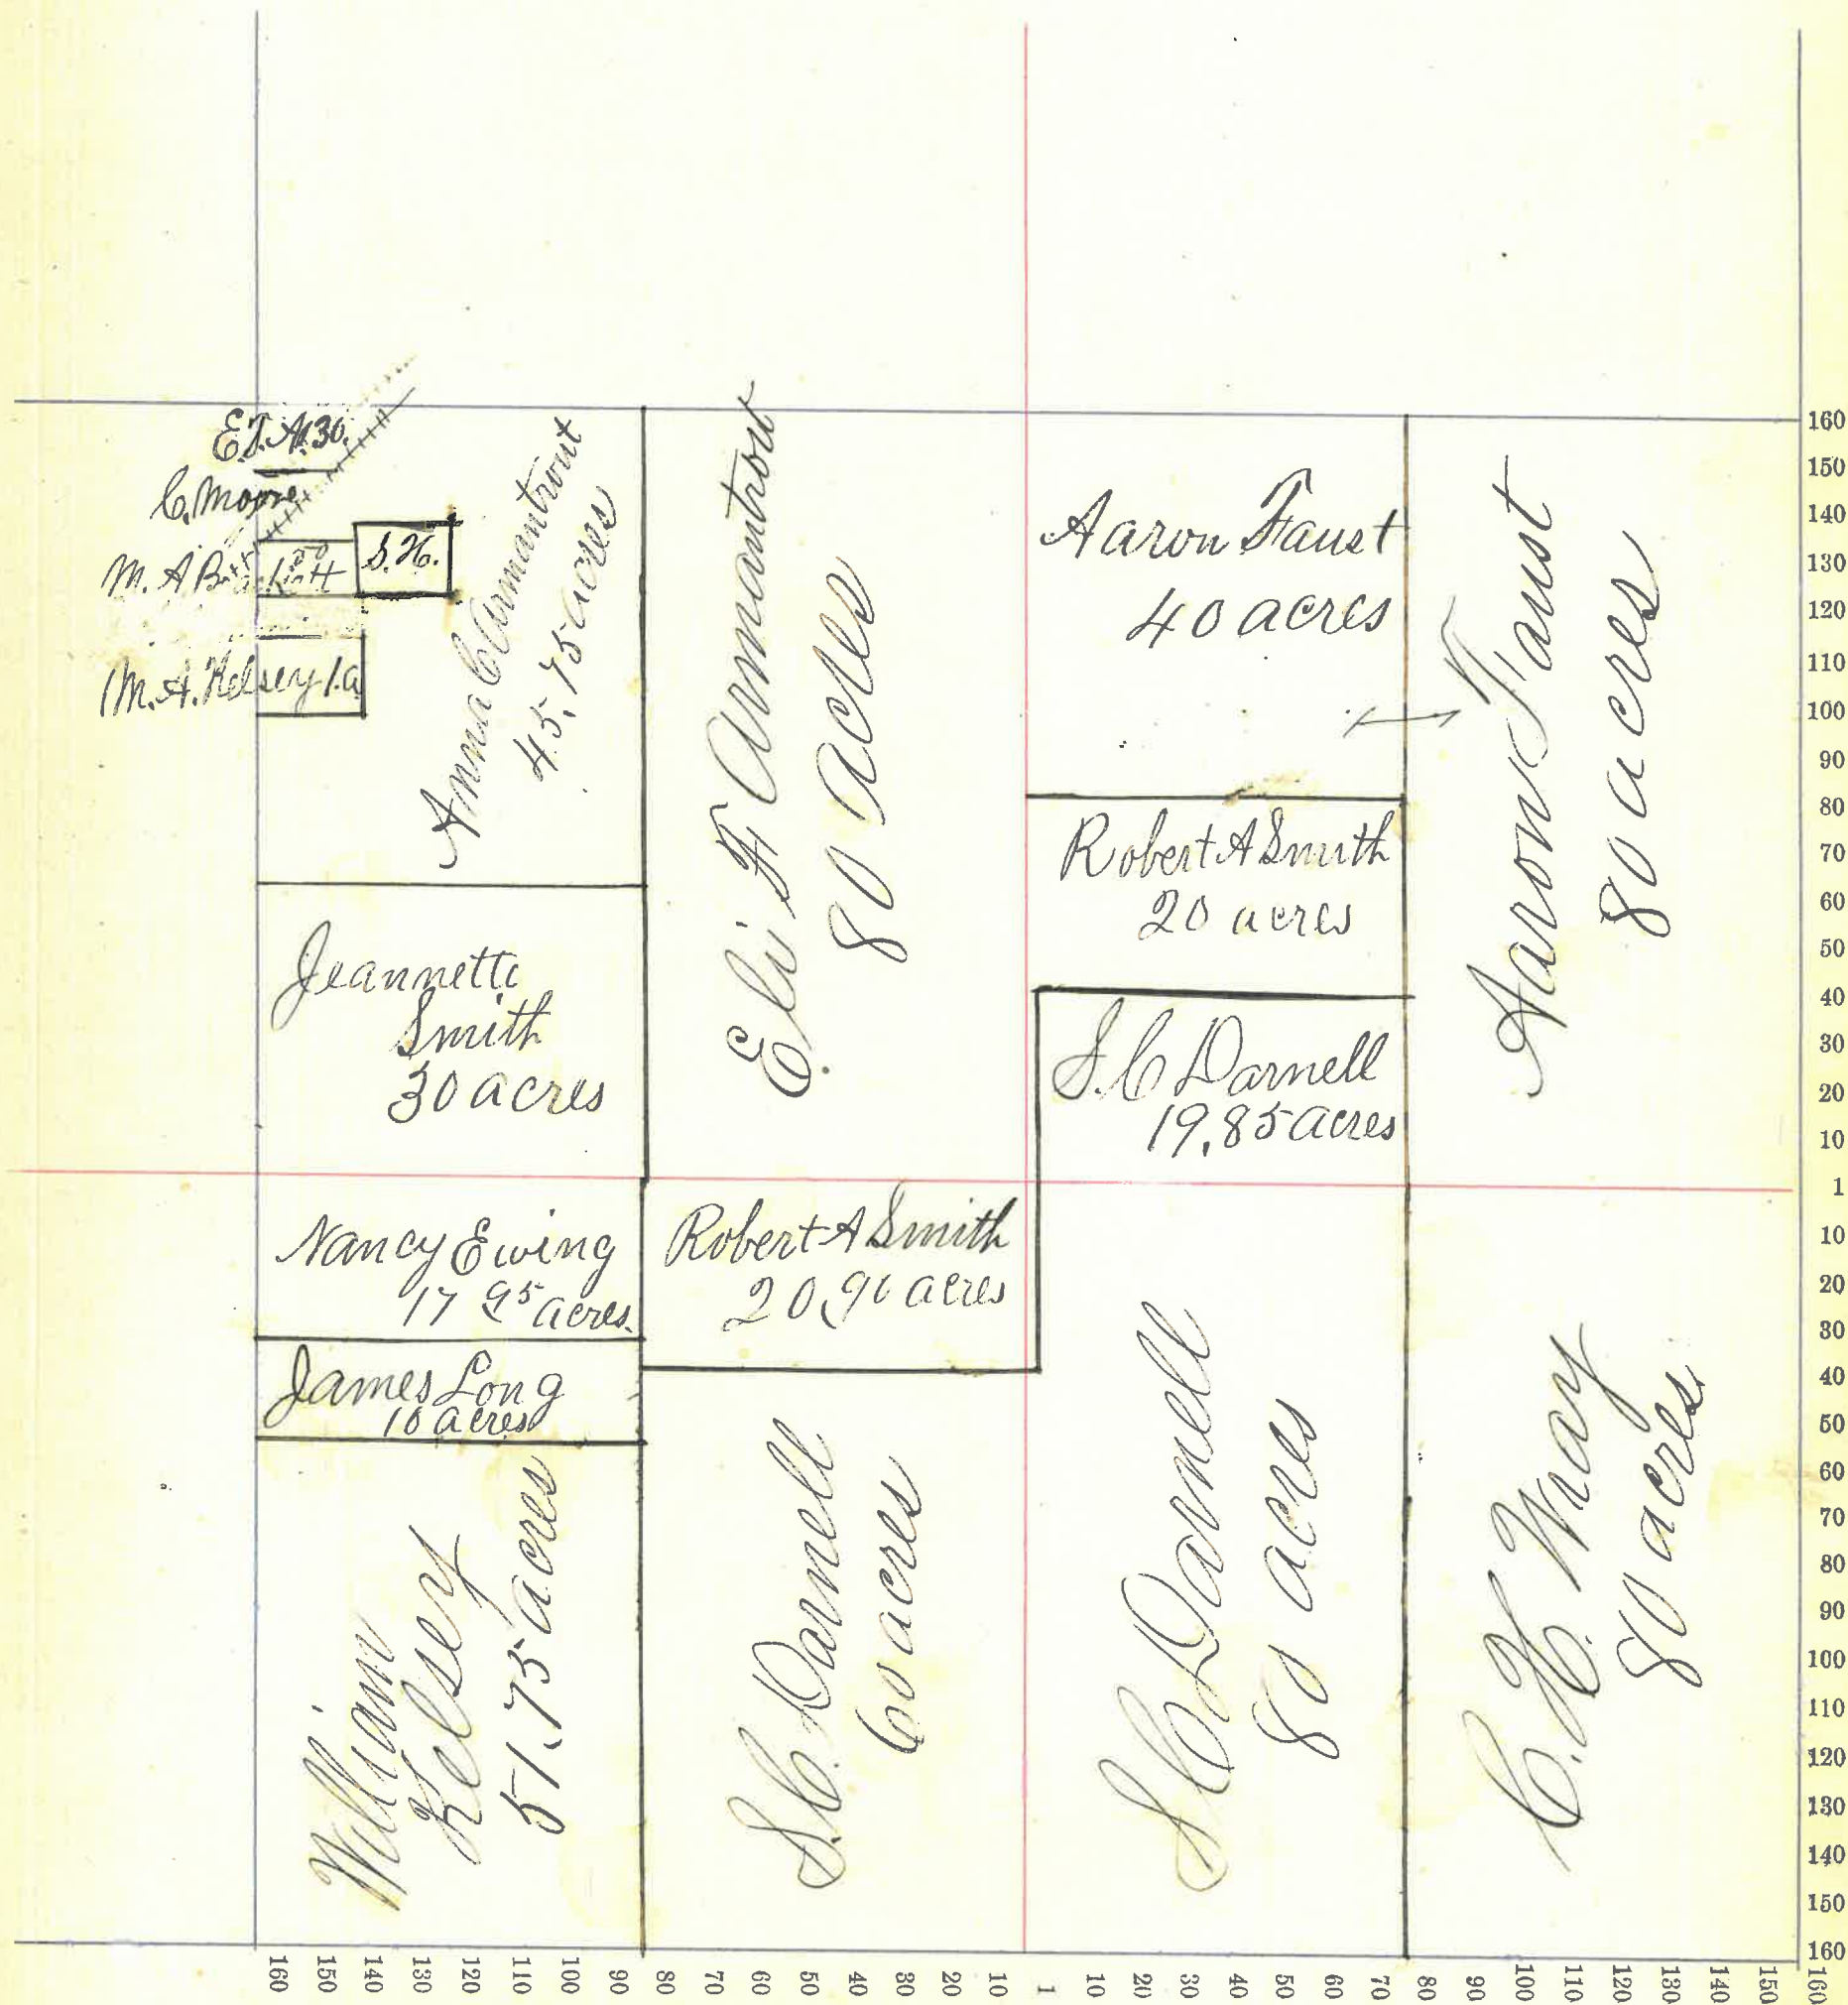 E.T.A. .30.
C. Moore
M. A
1.50
S.H.
M.A. Kelsey 1.a
Anna C Armantrout
45.75 acres
Eli F Armantrout
80 acres
Aaron Faust
40 acres
Aaron Faust
80 acres
Robert A Smith
20 acres
Jeannette
Smith
30 acres
S. C Darnell
19.85 acres
Nancy Ewing
17 95 acres.
Robert A Smith
20.96 acres
James Long
10 acres
William
Kelsey
51.75 acres
S.C. Darnell
60 acres
S C Darnell
80 acres
C. H. Wray
80 acres.
160
150
140
130
120
110
100
90
80
70
60
50
40
30
20
10
1
10
20
30
40
50
60
70
80
90
100
110
120
130
140
150
160
160 150 140 130 120 110 100 90 80 70 60 50 40 30 20 10 1 10 20 30 40 50 60 70 80 90 100 110 120 130 140 150 160